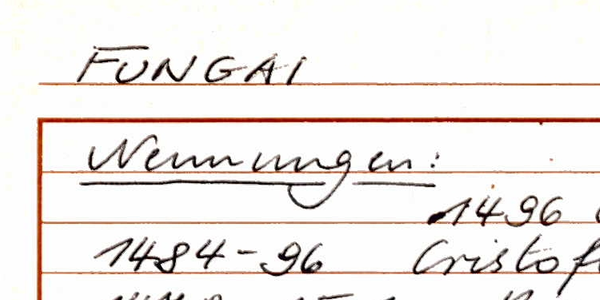 FUNGAI
Nennungen:
1496
1484-96 Cristof